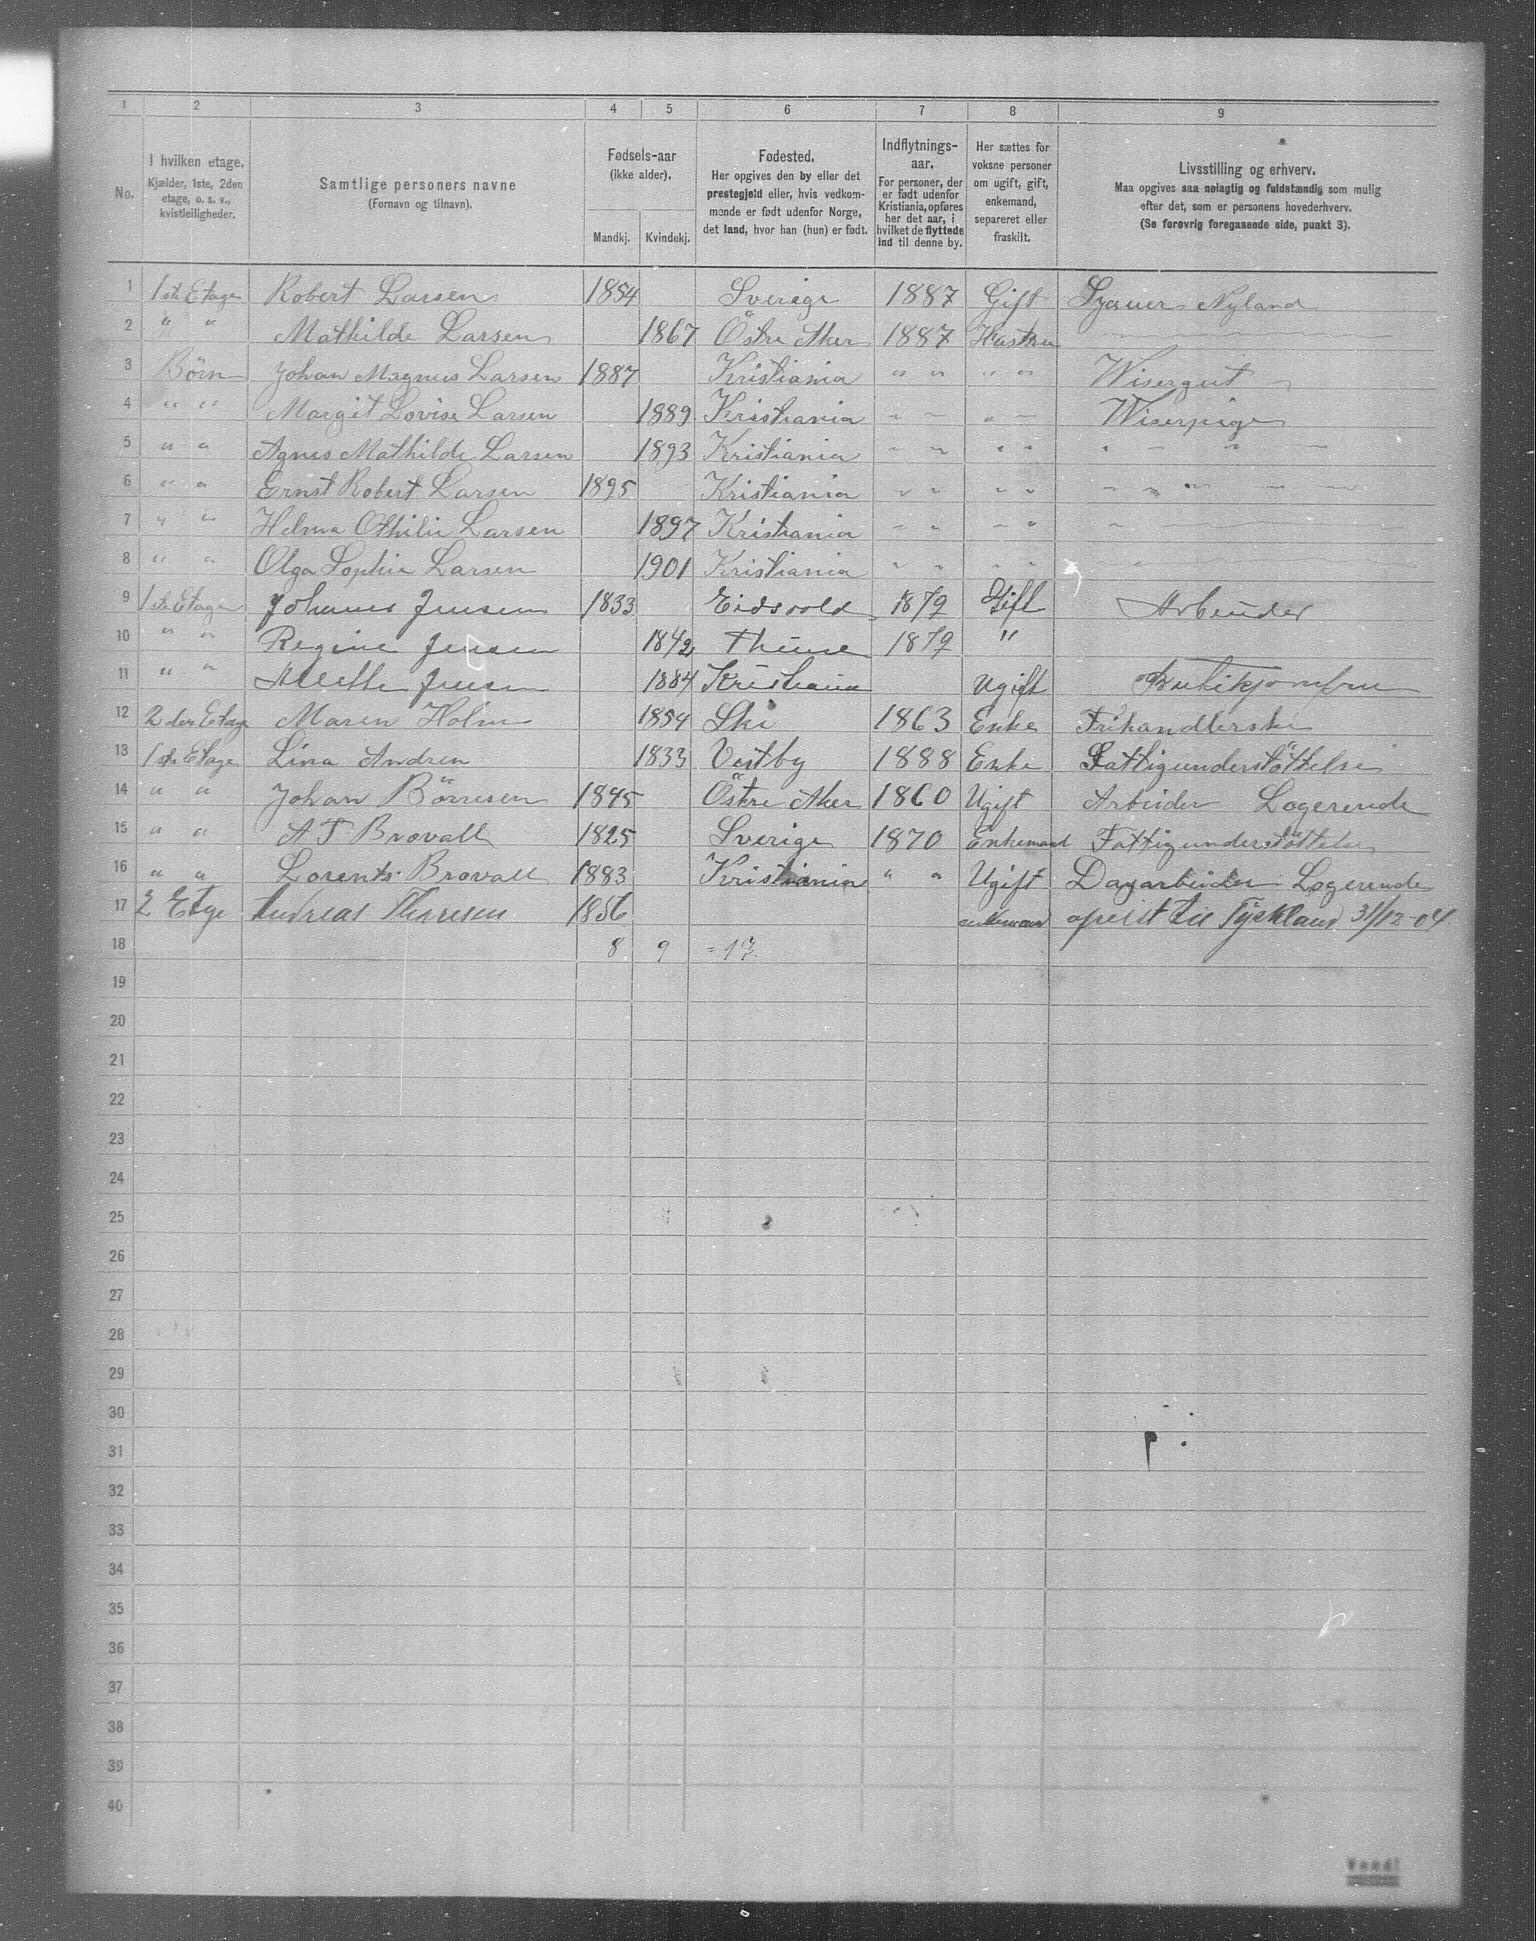 1 2 3 4 5 6 7 8 9
No.
I hvilken etage.
Kjælder, 1ste, 2den
etage, o. s. v.,
kvistleiligheder.
Samtlige personers navne
(Fornavn og tilnavn).
Fødsels-aar
(ikke alder).
Mandkj. Kvindekj.
Fødested.
Her opgives den by eller det
prestegjeld eller, hvis vedkom-
mende er født udenfor Norge,
det land, hvor han (hun) er født.
Indflytnings-
aar.
For personer, der
er født udenfor
Kristiania, opføres
her det aar, i
hvilket de flyttede
ind til denne by.
Her sættes for
voksne personer
om ugift, gift,
enkemand,
separeret eller
fraskilt.
Livsstilling og erhverv.
Maa opgives saa nøiagtig og fuldstændig som mulig
efter det, som er personens hovederhverv.
(Se forøvrig foregaaende side, punkt 3).
1 1ste Etage Robert Larsen 1854 Sverige 1887 Gift Nyland
2 " " Mathilde Larsen 1867 Östre Aker 1887 Hustru
3 Börn Johan Magnus Larsen 1887 Kristiania " " " " Wisergut
4 " " Margit Lovise Larsen 1889 Kristiania " " " " Wiserpige
5 " " Agnes Mathilde Larsen 1893 Kristiania " " " " " "
6 " " Ernst Robert Larsen 1895 Kristiania " " " " " "
7 " " Helma Othilie Larsen 1897 Kristiania " " " "
8 " " Olga Sophie Larsen 1901 Kristiania " " " "
9 1ste Etage Johanes Jensen 1833 Eidsvold 1879 Gift Arbeider
10 " " Regine Jensen 1842 1879 "
11 " " Jensen 1884 Kristiania Ugift
12 2den Etage Maren Holm 1854 Ski 1863 Enke Frihandlerske
13 1ste Etage Lina Andren 1833 Vestby 1888 Enke Fattigunderstöttelse
14 " " Johan Börresen 1845 Östre Aker 1860 Ugift Arbeider Logerende
15 " " A F Brovall 1825 Sverige 1870 Enkemand Fattigunderstöttelse
16 " " Lorents Brovall 1883 Kristiania " " Ugift Dagarbeider Logerende
17 2 Etage Andreas Thoresen 1856 enkemand til Tyskland 31/12-04
18 8 9 = 17.
19
20
21
22
23
24
25
26
27
28
29
30
31
32
33
34
35
36
37
38
39
40
Vend!